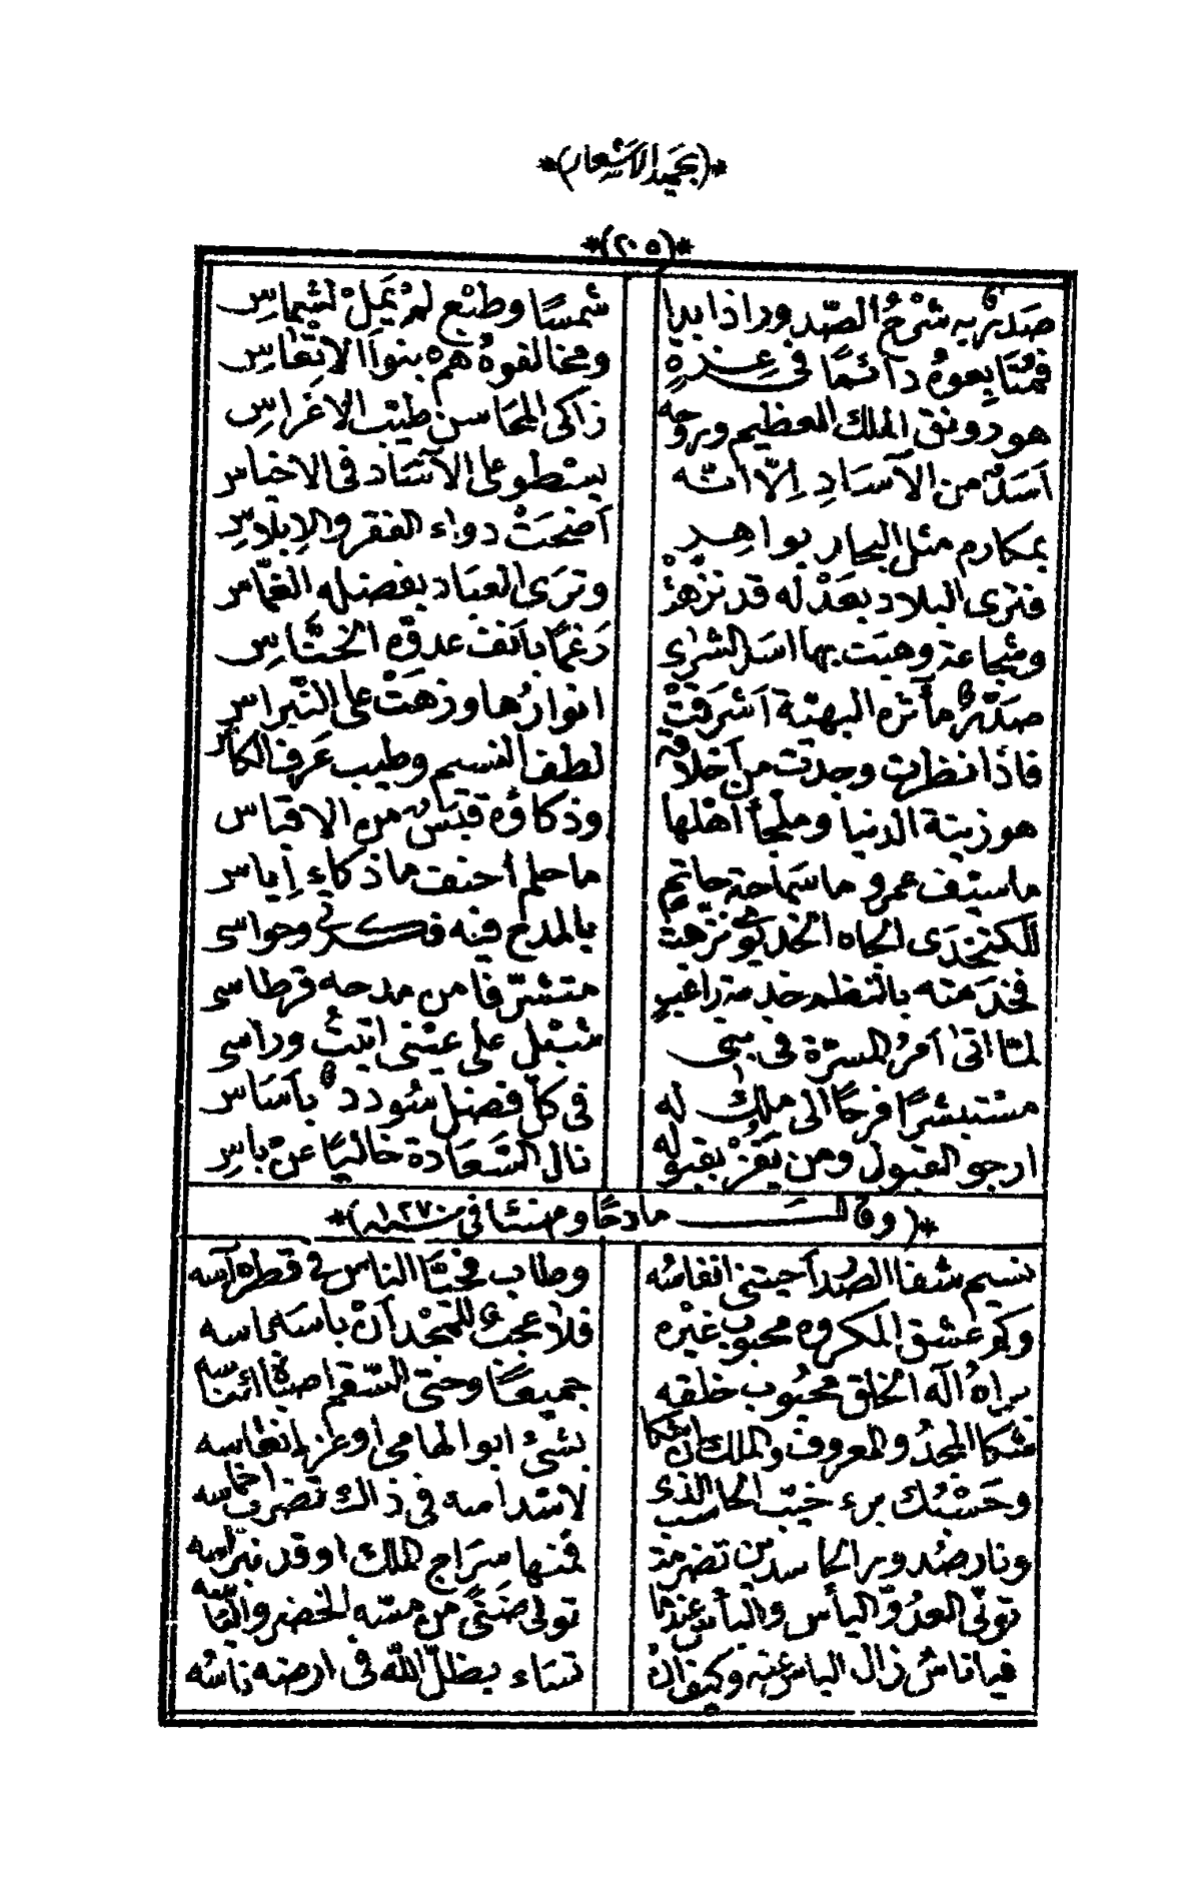 *(بحميد الاشعار)*
*(٢٠٥)*
صَدرٌ به شَرْحُ الصّدور اذا بدا شمسًا وطبْع لمْ يَمِلْ لشِماسِ
فمُتَابِعوهُ دآئمًا فى عِزةٍ ومخالفوهُ هم بنوا الاتْعاسِ
هو رونق الملك العظيم وروحه زاكى المحَاسن طيّب الاغراسِ
اَسَدٌ من الآسَادِ اِلّا انّه يسْطو على الآسَاد فى الاخياسِ
بمكارم مثل البحار بواهِر اَضحَتْ دواء الفقر والاِبلاسِ
فترى البلاد بعَدْله قد نزّهَتْ وترَى العبَاد بفضله الغمّاسِ
وشجاعة وهبَت بها اسَد الشرى رَغمًا بانف عدوّه الخنّاسِ
صَدرٌ مآثره البهيّة اَشرَقتْ انوارُها وزهَتْ على النّبراسِ
فاذا نظرت وجدت من اَخلاقه لطف النسيم وطيب عَرف الكاسِ
هو زينة الدنيا وملْجأ اهْلها وذكاؤه قبَسٌ من الاقباس
ما سيف عمرو ما سَماحة حاتم ما حلم أحنف ما ذكاء اِياس
للكتخدَى الجاه الخديوى نزّهت بالمدح فيه فكرتى وحواسى
فخدَمته بالنظم خدمة راغبٍ متشرّفا من مدحه قرطاسى
لمّا اتى اَمرُ المسرّة فى بنى شبْل على عيْنى اتيتُ وراسى
مستبشرًا فرحًا الى ملك له فى كل فضل سُودد بآسَاس
ارجو القبول ومن يَفُزْ بقبوله نال السّعَادة خاليًا عنْ باسِ
*(وقال مادحًا ومهنئا فى سنة ١٢٧٠)*
نسيم شفا الصّدر أحيتنى انفاسُه وطاب فحيّا الناس فى قطره آسه
وكم عشق المكروه محبوب غيْره فلا عجبٌ للمجْد اَنْ باسَه باسه
براهُ اله الخلق محبُوب خلقه جميعًا وحتى السّقم اصباه ايناسه
شكا المجدُ والمعروف والملك اذ شكا بشئ ابو الهامى اوعزه انفاسه
وحَسْبُك برء خيّب الحاسب الذى لاسْداسه فى ذاك تضرب اخماسه
ونار صُدور الحاسدين تضرمت فمنها سرَاج الملك اوقد نبراسه
تولّى العدُوّ اليأس والبأس عندما تولى ضنًى من مسّه الخضر واليّاسه
فيا ناسُ زال الباس عنه وكيف اَنْ تساء بظلّ اللّه فى ارضه ناسُه